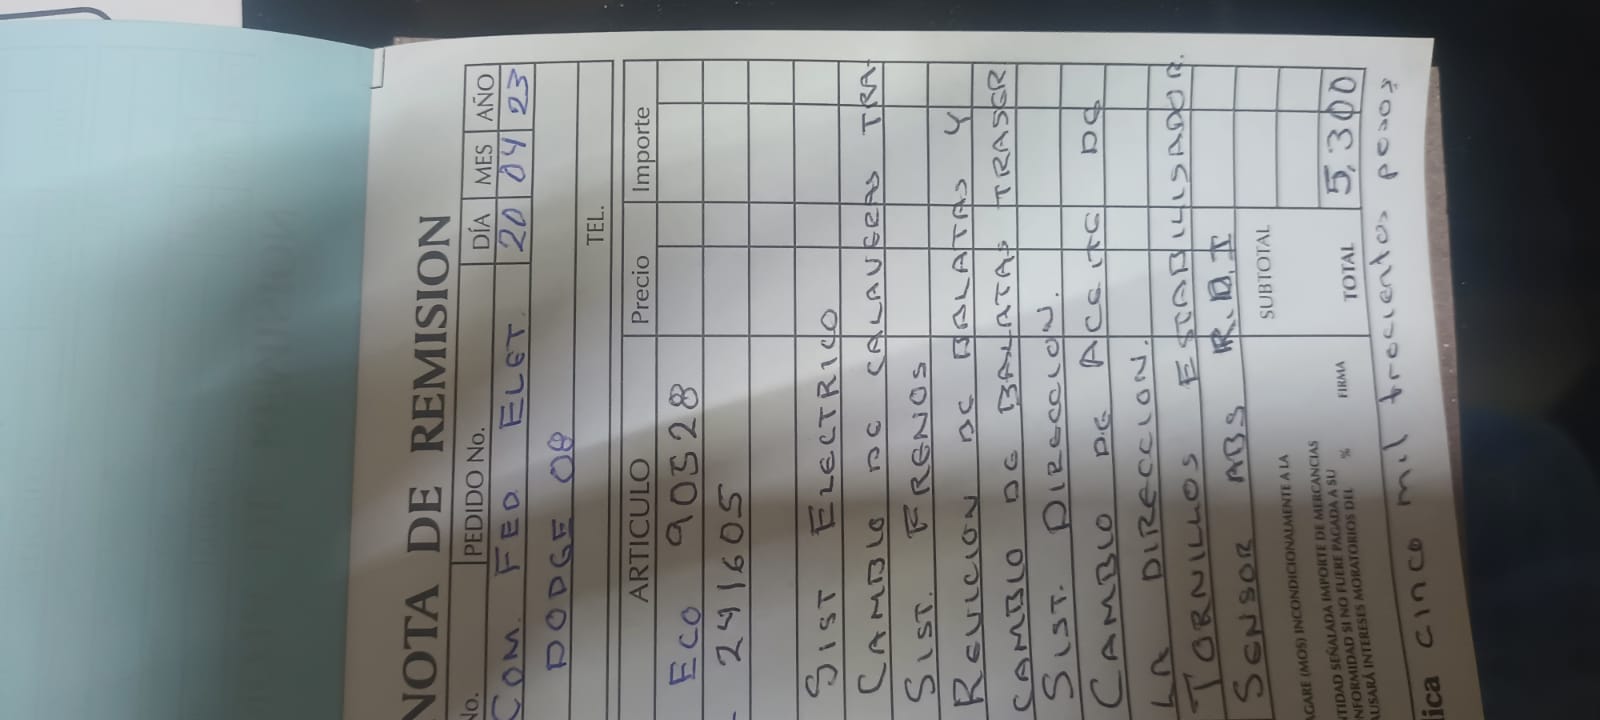 NOTA DE REMISION
No. PEDIDO No. DÍA MES AÑO
COM. FED ELET. 20 04 23
DODGE 08
TEL.
ARTICULO Precio Importe
ECO 90528
241605
SIST ELECTRICO
CAMBIO DE CALAVERAS TRA-
SIST. FRENOS
REVICION DE BALATAS Y
CAMBIO DE BALATAS TRASER
SIST. DIRECCION.
CAMBIO DE ACEITE DE
LA DIRECCION.
TORNILLOS ESTABILISADOR.
SENSOR ABS R.D.I
SUBTOTAL
AGARE (MOS) INCONDICIONALMENTE A LA
NTIDAD SEÑALADA IMPORTE DE MERCANCIAS
NFORMIDAD SI NO FUERE PAGADA A SU
AUSARÁ INTERESES MORATORIOS DEL %
FIRMA
TOTAL 5,300
ica cinco mil trecientos pesos